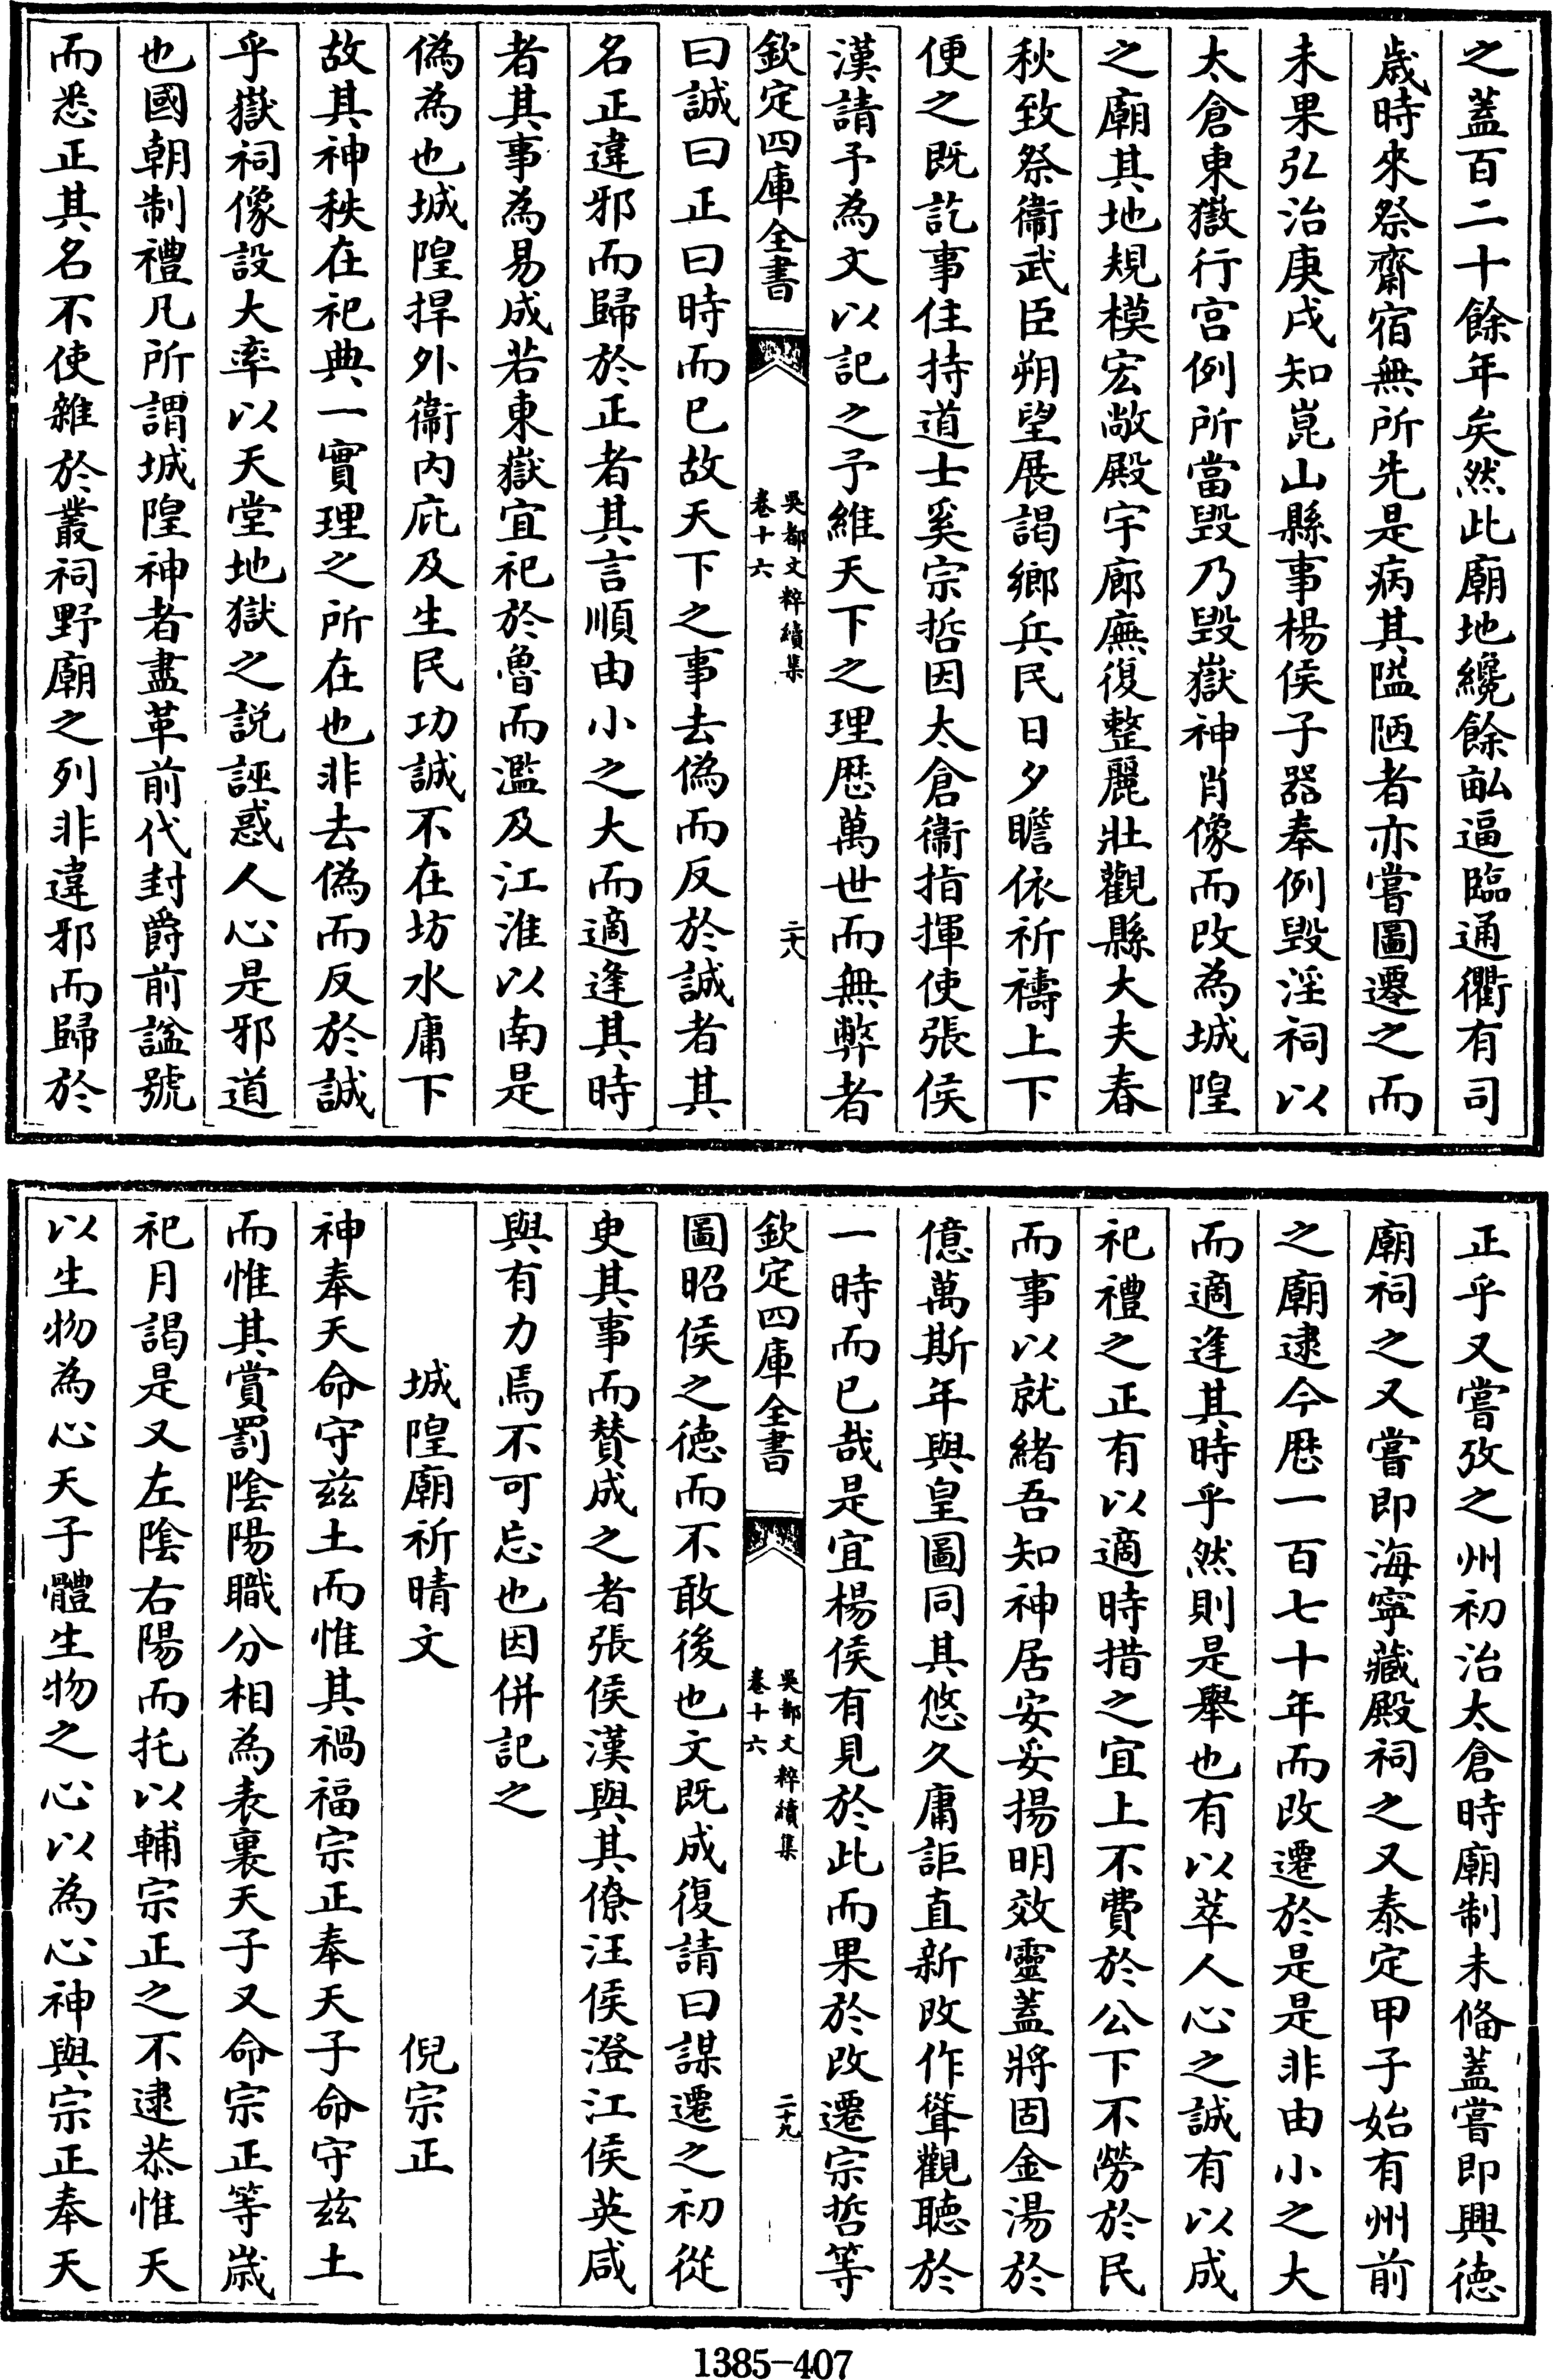 之蓋百二十餘年矣然此廟地纔餘畝逼臨通衢有司
歳時來祭齋宿無所先是病其隘陋者亦嘗圖遷之而
未果弘治庚戌知崑山縣事楊侯子器奉例毀淫祠以
太倉東嶽行宫例所當毁乃毁嶽神肖像而改為城隍
之廟其地規模宏敞殿宇廊廡復整麗壯觀縣大夫春
秋致祭衞武臣朔望展謁鄉兵民日夕瞻依祈禱上下
便之既訖事住持道士奚宗哲因太倉衞指揮使張侯
漢請予為文以記之予維天下之理歴萬世而無弊者
欽定四庫全書
吳都文粹續集
卷十六
二十八
曰誠曰正曰時而已故天下之事去偽而反於誠者其
名正違邪而歸於正者其言順由小之大而適逢其時
者其事為易成若東嶽宜祀於魯而濫及江淮以南是
偽為也城隍捍外衞内庇及生民功誠不在坊水庸下
故其神秩在祀典一實理之所在也非去偽而反於誠
乎嶽祠像設大率以天堂地獄之説誣惑人心是邪道
也國朝制禮凡所謂城隍神者盡革前代封爵前諡號
而悉正其名不使雜於叢祠野廟之列非違邪而歸於
正乎又嘗攷之州初治太倉時廟制未備蓋嘗即興徳
廟祠之又嘗即海寧藏殿祠之又泰定甲子始有州前
之廟逮今歴一百七十年而改遷於是是非由小之大
而適逢其時乎然則是舉也有以萃人心之誠有以成
祀禮之正有以適時措之宜上不費於公下不勞於民
而事以就緒吾知神居安妥揚明效靈蓋將固金湯於
億萬斯年與皇圖同其悠久庸詎直新改作聳觀聽於
一時而已哉是宜楊侯有見於此而果於改遷宗哲等
欽定四庫全書
吳都文粹續集
卷十六
二十九
圖昭侯之徳而不敢後也文既成復請曰謀遷之初從
㕜其事而賛成之者張侯漢與其僚汪侯澄江侯英咸
與有力焉不可忘也因併記之
城隍廟祈晴文 倪宗正
神奉天命守兹土而惟其禍福宗正奉天子命守兹土
而惟其賞罰陰陽職分相為表裏天子又命宗正等歳
祀月謁是又左陰右陽而托以輔宗正之不逮恭惟天
以生物為心天子體生物之心以為心神與宗正奉天
1385-407